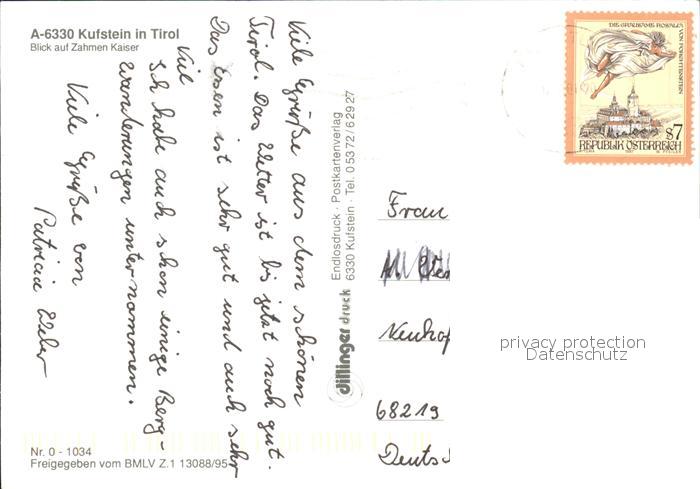 A-6330 Kufstein in Tirol
Blick auf Zahmen Kaiser
Viele Grüße aus dem schönen
Tirol. Das Wetter ist bis jetzt noch gut.
Das Essen ist sehr gut und auch sehr
viel
Ich habe auch schon einige Berg-
wanderungen unternommen.
Viele Grüße von
Patricia Weber
Nr. 0 - 1034
Freigegeben vom BMLV Z.1 13088/95
dillinger druck
Endlosdruck · Postkartenverlag
6330 Kufstein · Tel. 0 53 72 / 6 29 27
DIE GRAUSAME ROSALIA
VON FORCHTENSTEIN
S7
REPUBLIK ÖSTERREICH
Frau
Neuhof
68219
Deuts
privacy protection
Datenschutz